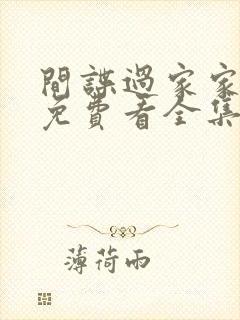 間諜過家家
免費看全集
薄荷雨